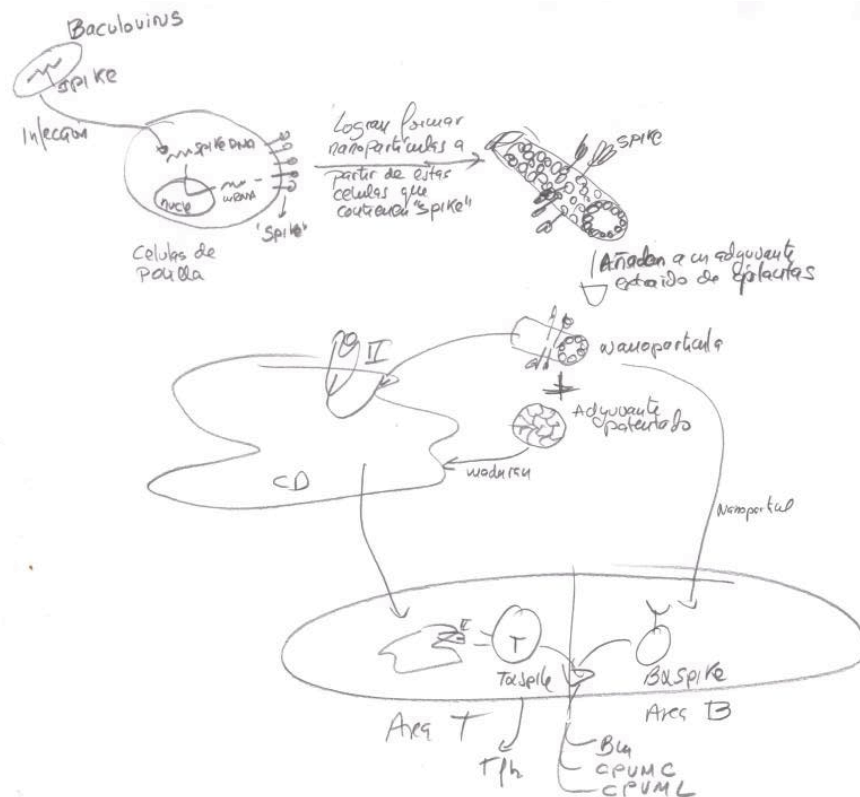 Baculovirus
SPIKE
Infección
SPIKE DNA
mRNA
nucle
"Spike"
Celulas de
Polilla
Logran formar
nanoparticulas a
partir de estas
celulas que
contienen "spike"
SPIKE
Añaden a un adyuvante
extraido de
nanoparticula
+
Adyuvante
patentado
II
CD
maduran
Nanoparticul
II
T
TαSpike
BαSpike
Area T
Area B
Tfh
Bm
CPVMC
CPVML